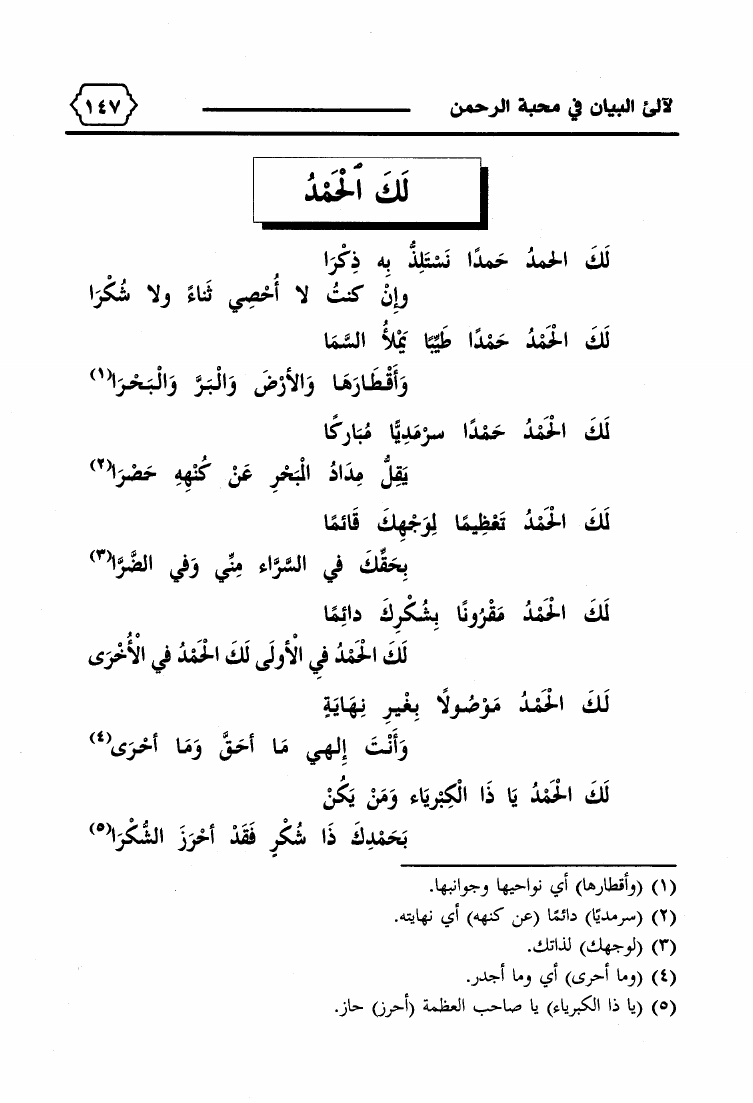 لآلئ البيان في محبة الرحمن ١٤٧
لَكَ الْحَمْدُ
لَكَ الحمدُ حَمدًا نَسْتَلِذُّ بِه ذِكْرَا
وإِنْ كنتُ لا أُحْصِي ثَناءً ولا شُكْرَا
لَكَ الْحَمْدُ حَمْدًا طَيِّبًا يَمْلأُ السَّمَا
وَأَقْطَارَهَا وَالأرْضَ وَالْبَرَّ وَالْبَحْرَا(١)
لَكَ الْحَمْدُ حَمْدًا سرْمَدِيًّا مُبَاركًا
يَقِلُّ مِدَادُ الْبَحْرِ عَنْ كُنْهِهِ حَصْرَا(٢)
لَكَ الْحَمْدُ تَعْظِيمًا لِوَجْهِكَ قَائمًا
بِحَقِّكَ في السَّرَّاء مِنِّي وَفي الضَّرَّا(٣)
لَكَ الْحَمْدُ مَقْرُونًا بِشُكْرِكَ دائِمًا
لَكَ الْحَمْدُ فِي الْأولَى لَكَ الْحَمْدُ في الْأُخْرَى
لَكَ الْحَمْدُ مَوْصُولًا بِغْيرِ نِهَايَةٍ
وَأَنْتَ إِلهي مَا أحَقَّ وَمَا أحْرَى(٤)
لَكَ الْحَمْدُ يَا ذَا الْكِبْرِيَاء وَمَنْ يَكُنْ
بَحَمْدِكَ ذَا شُكْرٍ فَقَدْ أحْرَزَ الشُّكْرَا(٥)
(١) (وأقطارها) أي نواحيها وجوانبها.
(٢) (سرمديًا) دائمًا (عن كنهه) أي نهايته.
(٣) (لوجهك) لذاتك.
(٤) (وما أحرى) أي وما أجدر.
(٥) (يا ذا الكبرياء) يا صاحب العظمة (أحرز) حاز.